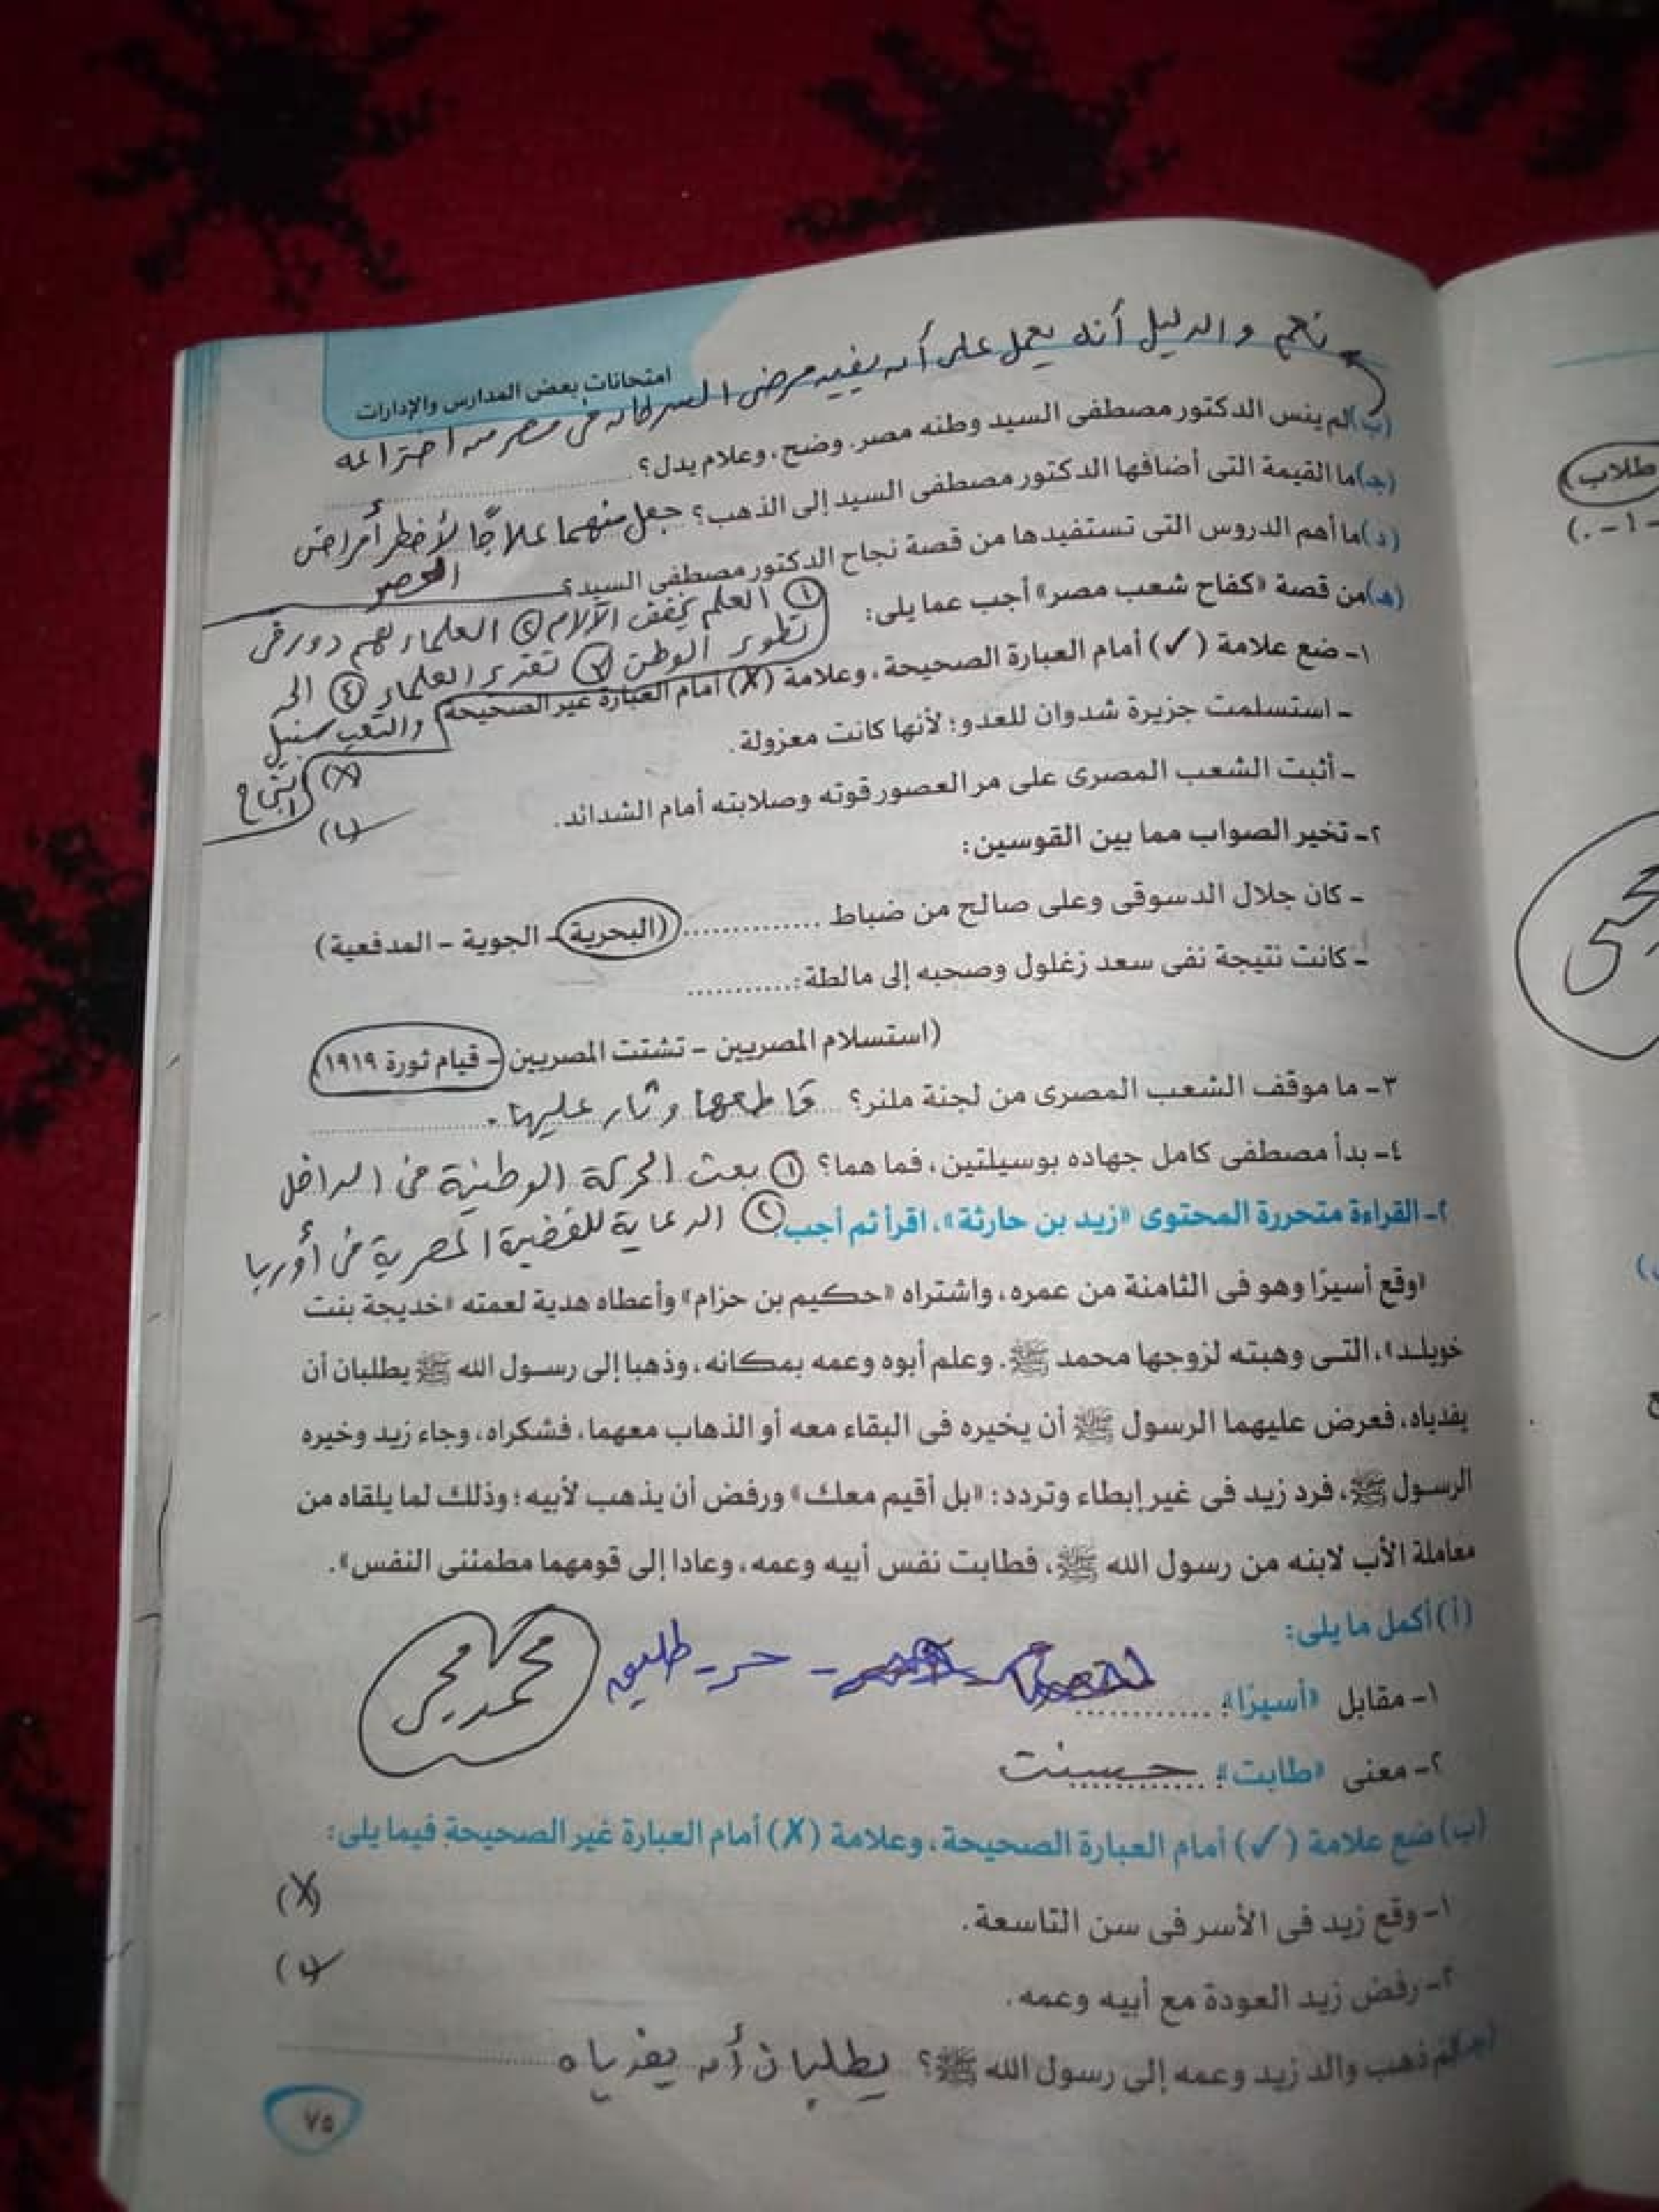 نعم والدليل أنه يعمل على أن يفيد مرضى السرطان فى مصر من اختراعه
امتحانات بعض المدارس والإدارات
(ب) لم ينس الدكتور مصطفى السيد وطنه مصر. وضح، وعلام يدل؟
(جـ) ما القيمة التى أضافها الدكتور مصطفى السيد إلى الذهب؟ جعل منهما علاجًا لأخطر أمراض
العصر
(د) ما أهم الدروس التى تستفيدها من قصة نجاح الدكتور مصطفى السيد؟
① العلم يخفف الآلام ② العلماء لهم دور فى
(هـ) من قصة «كفاح شعب مصر» أجب عما يلى:
تطوير الوطن ③ تقدير العلماء ④
١- ضع علامة (✓) أمام العبارة الصحيحة، وعلامة (X) أمام العبارة غير الصحيحة
والتعب سبيل
النجاح
- استسلمت جزيرة شدوان للعدو؛ لأنها كانت معزولة. (X)
- أثبت الشعب المصرى على مر العصور قوته وصلابته أمام الشدائد. (✓)
٢- تخير الصواب مما بين القوسين:
- كان جلال الدسوقى وعلى صالح من ضباط .............. (البحرية - الجوية - المدفعية)
- كانت نتيجة نفى سعد زغلول وصحبه إلى مالطة: ...........
(استسلام المصريين - تشتت المصريين - قيام ثورة ١٩١٩)
٣- ما موقف الشعب المصرى من لجنة ملنر؟ قاطعها وثار عليها.
٤- بدأ مصطفى كامل جهاده بوسيلتين، فما هما؟ ① بعث الحركة الوطنية فى الداخل
② الدعاية للقضية المصرية فى أوربا
٢- القراءة متحررة المحتوى «زيد بن حارثة»، اقرأ ثم أجب:
«وقع أسيرًا وهو فى الثامنة من عمره، واشتراه «حكيم بن حزام» وأعطاه هدية لعمته «خديجة بنت
خويلد»، التى وهبته لزوجها محمد ﷺ. وعلم أبوه وعمه بمكانه، وذهبا إلى رسول الله ﷺ يطلبان أن
يفدياه، فعرض عليهما الرسول ﷺ أن يخيره فى البقاء معه أو الذهاب معهما، فشكراه، وجاء زيد وخيره
الرسول ﷺ، فرد زيد فى غير إبطاء وتردد: «بل أقيم معك» ورفض أن يذهب لأبيه؛ وذلك لما يلقاه من
معاملة الأب لابنه من رسول الله ﷺ، فطابت نفس أبيه وعمه، وعادا إلى قومهما مطمئنى النفس».
(أ) أكمل ما يلى:
١- مقابل «أسيرًا»: ............ - حر - طليق
محمد محى
٢- معنى «طابت»: حسنت
(ب) ضع علامة (✓) أمام العبارة الصحيحة، وعلامة (X) أمام العبارة غير الصحيحة فيما يلى:
١- وقع زيد فى الأسر فى سن التاسعة. (X)
٢- رفض زيد العودة مع أبيه وعمه. (✓)
(جـ) لم ذهب والد زيد وعمه إلى رسول الله ﷺ؟ يطلبان أن يفدياه
٧٥
طلاب)